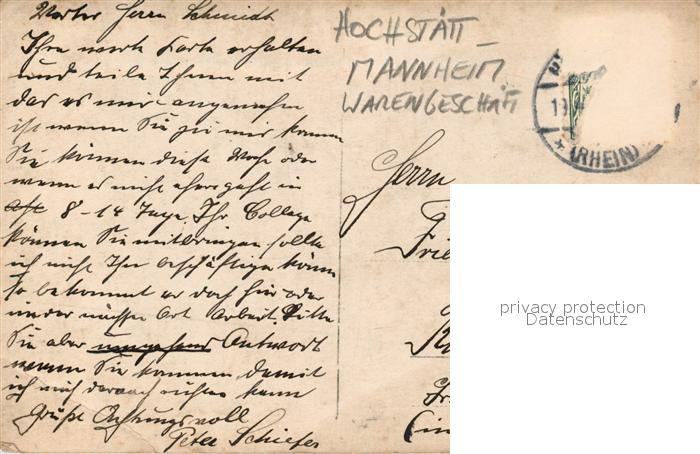 Werter Herrn Schmidt
Ihre werte Karte erhalten
und teile Ihnen mit
das es mir angenehm
ist wenn Sie zu mir kommen
Sie können diese Woche oder
wenn es nicht eher geht in
8-14 Tage. Ihr Collega
können Sie mitbringen sollte
ich nicht Ihn beschäftigen können
so bekommt er doch hier oder
in der nächsten Ort Arbeit. Bitte
Sie aber umgehend Antwort
wenn Sie kommen damit
ich mich darnach richten kann
Grüße Achtungsvoll
Peter Schiefer
HOCHSTÄTT
MANNHEIM
WARENGESCHÄFT
(RHEIN)
Herrn
privacy protection
Datenschutz